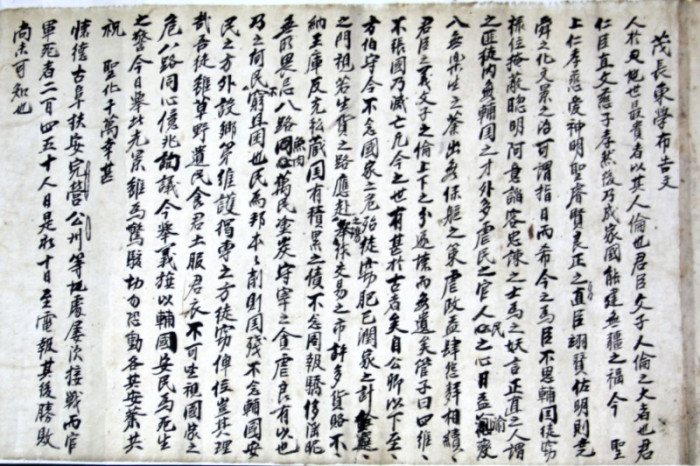 茂長東學布告文
人於世最貴者以其人倫也君臣父子人倫之大者也君
仁臣直父慈子孝然後乃成家國能逮無疆之福今 聖
上仁孝慈愛神明聖睿賢良正之直臣翊賛佐明則堯
舜之化文景之治可謂指日而希今之爲臣不思輔国徒窃
祿位掩蔽聰明阿意諂容忠諫之士爲之妖言正直之人謂
之匪徒內無輔国之才外多虐民之官人民之心日益渝變
入無樂生之業出無保軀之策虐政益肆怨聲相續
君臣之義父子之倫上下之分遂壞而無遺矣管子曰四維
不張國乃滅亡凡今之世有甚於古者矣自公卿以下至
方伯守令不念國家之危殆徒窃肥己潤家之計
之門視若生貨之路應赴之場 作交易之市許多貨賂不
納王庫反充私藏国有積累之債不念圖報驕侈淫昵
無所畏忌八路魚肉萬民塗炭守宰之貪虐良有以也
乃之何民不窮且困也民爲邦本本削則国殘不念輔國安
民之方外設鄉第維護獨專之方徒窃俾位豈其理
哉吾徒雖草野遺民食君土服君衣不可坐視國家之
危八路同心億兆詢議今擧義旗以輔國安民爲死生
之誓今日擧此光景雖爲驚駭切勿恐動各其安業共
祝 聖化千萬幸甚
懷德古阜扶安完營公州等地處屢次接戰而官
軍死者二百四五十人日是於十日至電報其後勝敗
尚未可知也